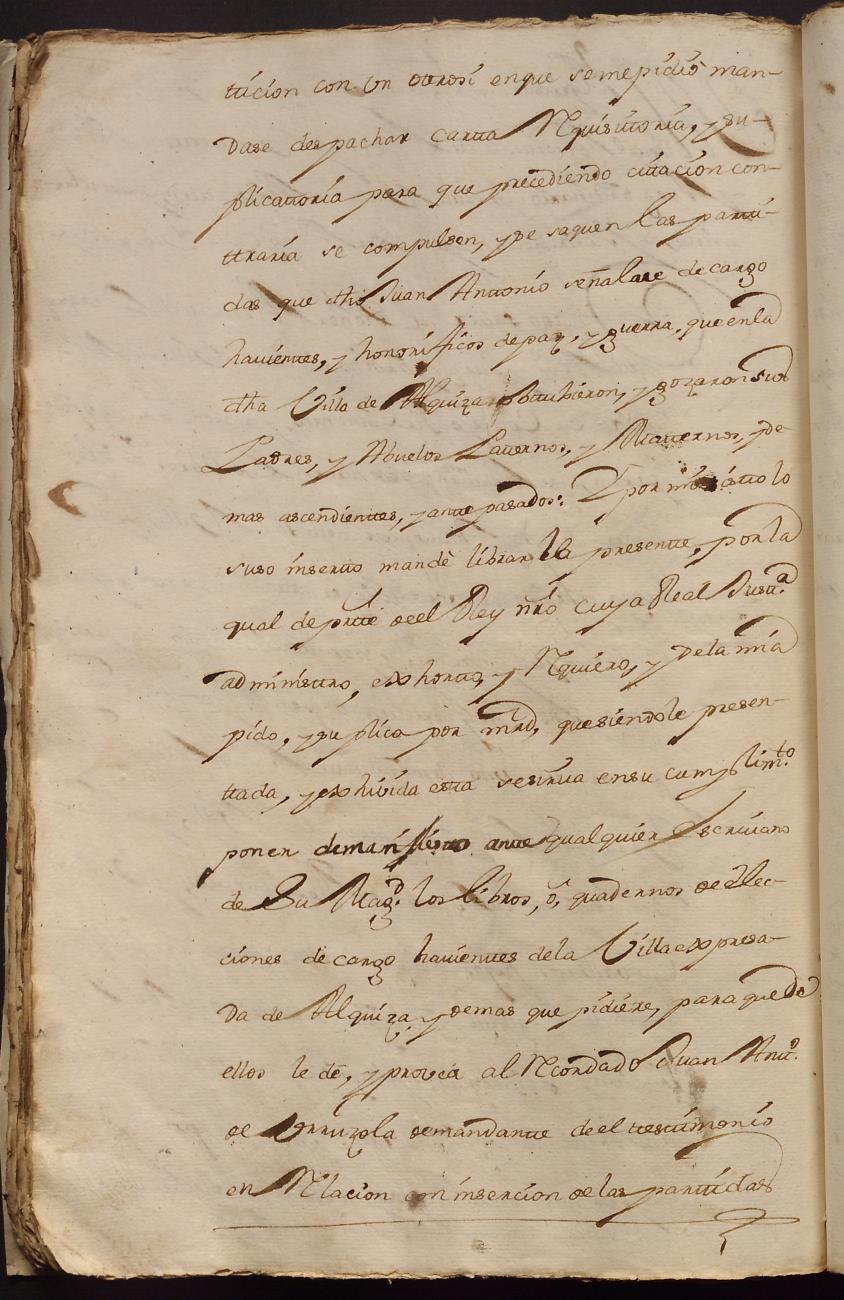 tticion con Vn ottrosi en que se me pidió man-
dase despachar cartta Requisittoria, y su-
plicattoria para que precediendo cittacion con-
ttraria se compulsen, y se saquen las partti-
das que dho Juan Anttonio señalare de cargo
havienttes, y honorificos de paz, y guerra, que en la
dha Villa de Alquiza obttubieron, y gozaron sus
Padres, y Abuelos Patternos, y Matternos, y de
mas ascendienttes, y antte pasados: Y por mi Autto lo
suso insertto mandè librar la presentte, por la
qual de partte de el Rey nrō cuya Real Justt.ª
administtro, exhortto, y Requiero, y de la mia
pido, y suplico por mrd, que siendole presen-
ttada, y exhivida estta se sirva en su cumplim.to
poner de manifiestto antte qualquier Escrivano
de Su Mag.d los libros, ó, quadernos de Elec-
ciones de cargo havienttes de la Villa expresa-
da de Alquiza, y demas que pidiere, para que de
ellos le dè, y provea al Recordado Juan Antt.º
de Vrruzola demandantte de el testtimonio
en Relacion con insercion de las parttidas